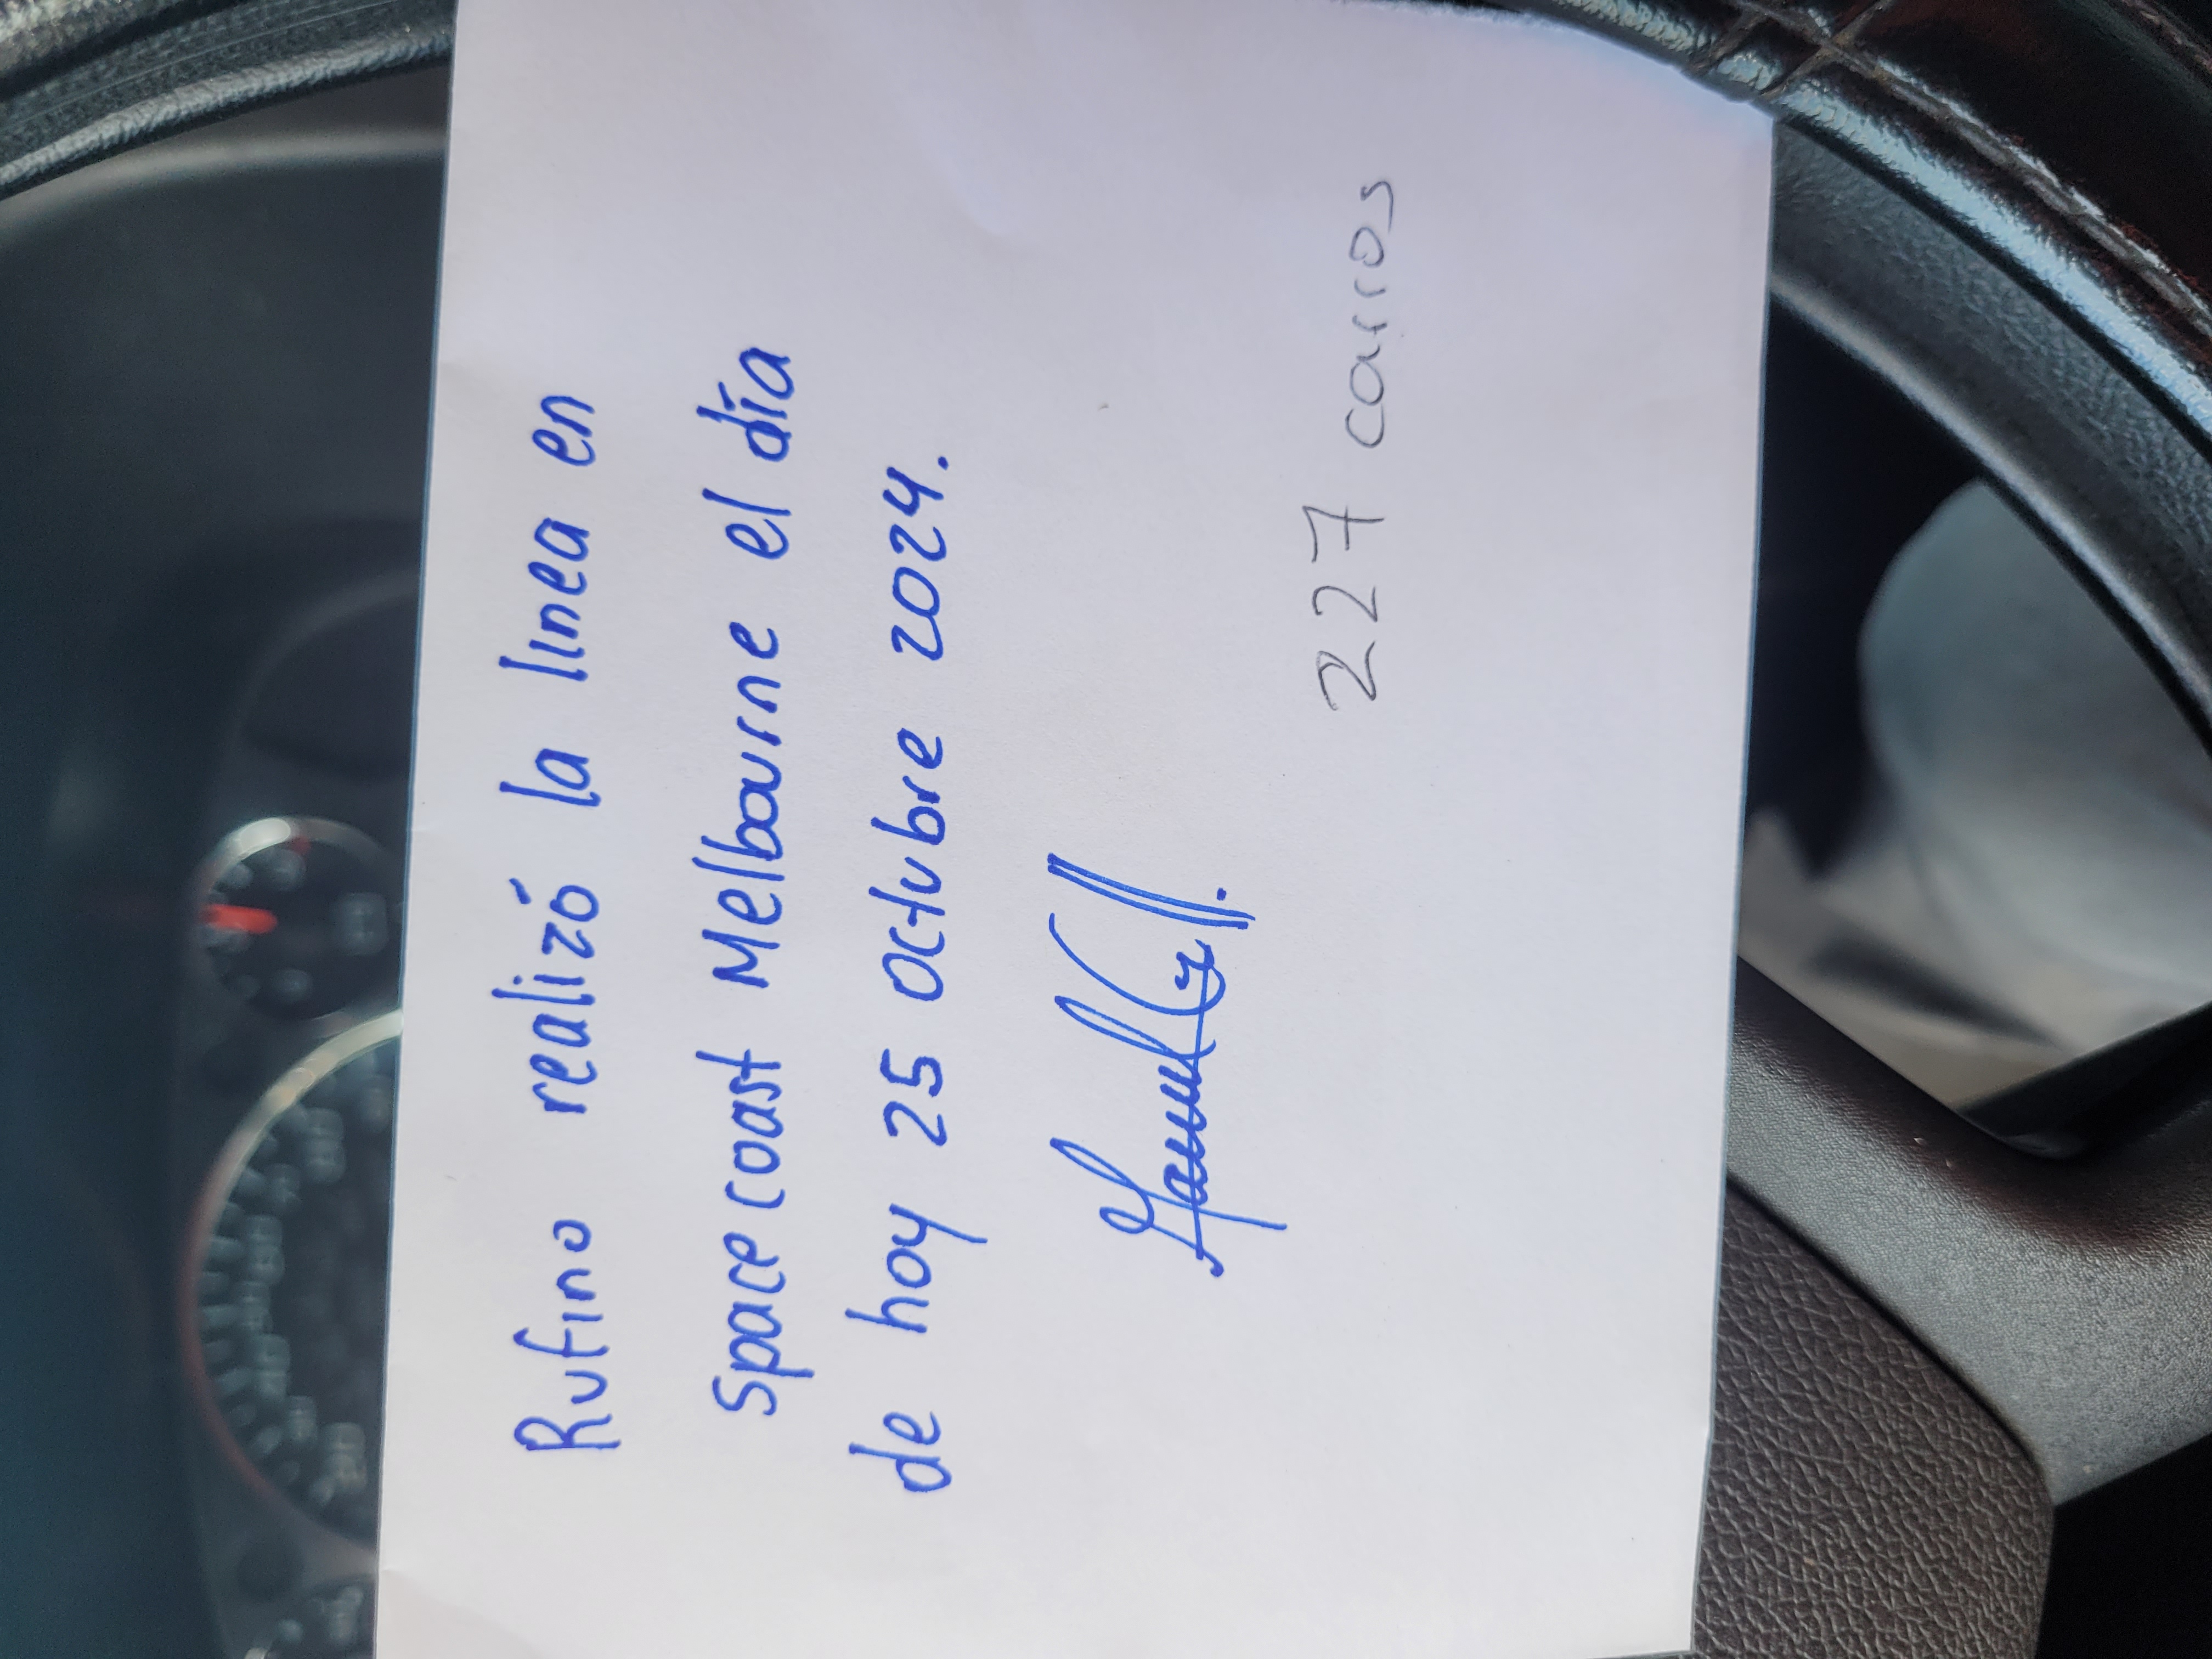 Rufino realizó la linea en
Space coast Melbourne el día
de hoy 25 octubre 2024.
227 carros